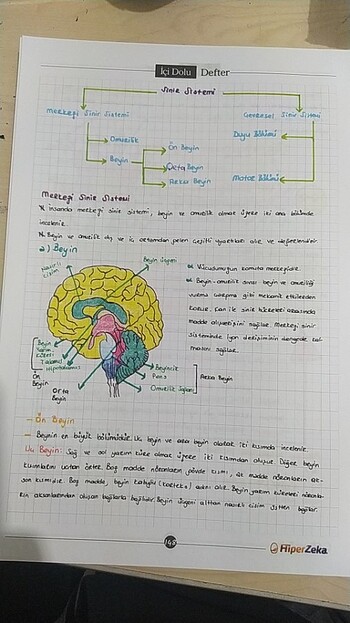 İçi Dolu Defter
Sinir Sistemi
Merkezi Sinir Sistemi
Çevresel Sinir Sistemi
Omurilik
Beyin
Ön Beyin
Orta Beyin
Arka Beyin
Duyu Bölümü
Motor Bölümü
Merkezi Sinir Sistemi
İnsanda merkezi sinir sistemi, beyin ve omurilik olmak üzere iki ana bölümde
incelenir.
Beyin ve omurilik dış ve iç ortamdan gelen çeşitli uyartıları alır ve değerlendirir.
a) Beyin
Nasırlı
Cisim
Beyin Üçgeni
Beyin
Yarım
Küresi
Talamus
Hipotalamus
Ön
Beyin
Orta
Beyin
Beyincik
Pons
Omurilik Soğanı
Arka Beyin
Vücudumuzun komuta merkezidir.
Beyin-omurilik sıvısı beyin ve omuriliği
vurma çarpma gibi mekanik etkilerden
korur. Kan ile sinir hücreleri arasında
madde alışverişini sağlar. Merkezi sinir
sisteminde iyon derişiminin dengede kal-
masını sağlar.
- Ön Beyin
- Beynin en büyük bölümüdür. Uç beyin ve ara beyin olarak iki kısımda incelenir.
Uç Beyin: Sağ ve sol yarım küre olmak üzere iki kısımdan oluşur. Diğer beyin
kısımlarını üstten örter. Boz madde nöronların gövde kısmı, ak madde nöronların ak-
son kısmıdır. Boz madde, beyin kabuğu (korteks) adını alır. Beyin yarım küreleri nöronla-
rın aksonlarından oluşan bağlarla bağlıdır. Beyin üçgeni alttan nasırlı cisim üstten bağlar.
145
HiperZeka